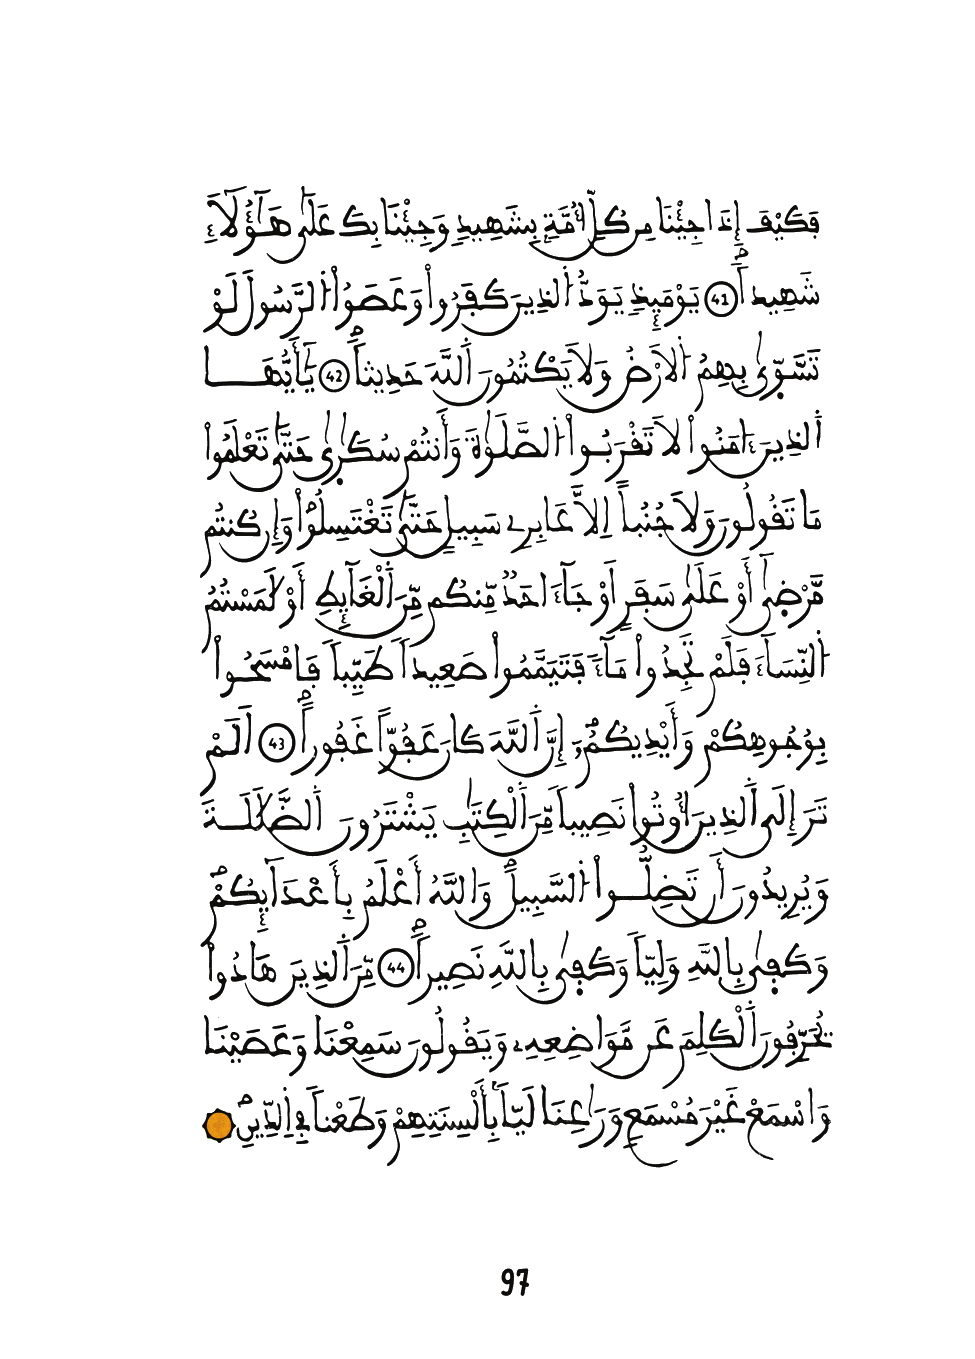 فَكَيْفَ إِذَا جِئْنَا مِن كُلِّ أُمَّةِۢ بِشَهِيدٖ وَجِئْنَا بِكَ عَلَىٰ هَٰٓؤُلَآءِ
شَهِيداٗۖ 41 يَوْمَئِذٖ يَوَدُّ اُ۬لذِينَ كَفَرُواْ وَعَصَوُاْ اُ۬لرَّسُولَ لَوْ
تَسَّوّ۪يٰ بِهِمُ اُ۬لَارْضُ وَلَا يَكْتُمُونَ اَ۬للَّهَ حَدِيثاٗۖ 42 يَٰٓأَيُّهَا
اَ۬لذِينَ ءَامَنُواْ لَا تَقْرَبُواْ اُ۬لصَّلَوٰةَ وَأَنتُمْ سُكَٰر۪يٰ حَتَّىٰ تَعْلَمُواْ
مَا تَقُولُونَ وَلَا جُنُباً اِلَّا عَابِرِے سَبِيلٍ حَتَّىٰ تَغْتَسِلُواْۖ وَإِن كُنتُم
مَّرْض۪يٰٓ أَوْ عَلَىٰ سَفَرٍ أَوْ جَآءَ احَدٞ مِّنكُم مِّنَ اَ۬لْغَآئِطِ أَوْ لَٰمَسْتُمُ
اُ۬لنِّسَآءَ فَلَمْ تَجِدُواْ مَآءٗ فَتَيَمَّمُواْ صَعِيداٗ طَيِّباٗ فَامْسَحُواْ
بِوُجُوهِكُمْ وَأَيْدِيكُمُۥٓۖ إِنَّ اَ۬للَّهَ كَانَ عَفُوّاً غَفُوراًۖ 43 اَلَمْ
تَرَ إِلَى اَ۬لذِينَ أُوتُواْ نَصِيباٗ مِّنَ اَ۬لْكِتَٰبِ يَشْتَرُونَ اَ۬لضَّلَٰلَةَ
وَيُرِيدُونَ أَن تَضِلُّواْ اُ۬لسَّبِيلَۖ وَاللَّهُ أَعْلَمُ بِأَعْدَآئِكُمْۖ
وَكَف۪يٰ بِاللَّهِ وَلِيّاٗ وَكَف۪يٰ بِاللَّهِ نَصِيراٗۖ 44 مِّنَ اَ۬لذِينَ هَادُواْ
يُحَرِّفُونَ اَ۬لْكَلِمَ عَن مَّوَاضِعِهِۦ وَيَقُولُونَ سَمِعْنَا وَعَصَيْنَا
وَاسْمَعْ غَيْرَ مُسْمَعٖ وَرَٰعِنَا لَيّاَۢ بِأَلْسِنَتِهِمْ وَطَعْناٗ فِے اِ۬لدِّينِۖ
97